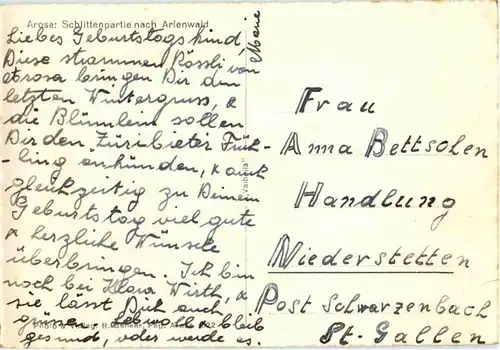 Arosa: Schlittenpartie nach Arlenwald
Liebes Geburtstagskind,
Diese strammen Rössli von
Arosa bringen Dir den
letzten Wintergruss, &
die Blümlein sollen
Dir den "Züribieter Früh-
-ling ankünden, & auch
gleichzeitig zu Deinem
Geburtstag viel gute
& herzliche Wünsche
überbringen. Ich bin
noch bei Klara Wirth, &
sie lässt Dich auch
grüssen. Lebwohl & bleib
gesund, oder werde es.
Frau
Anna Bettsohen
Handlung
Niederstetten
Post Schwarzenbach
St. Gallen